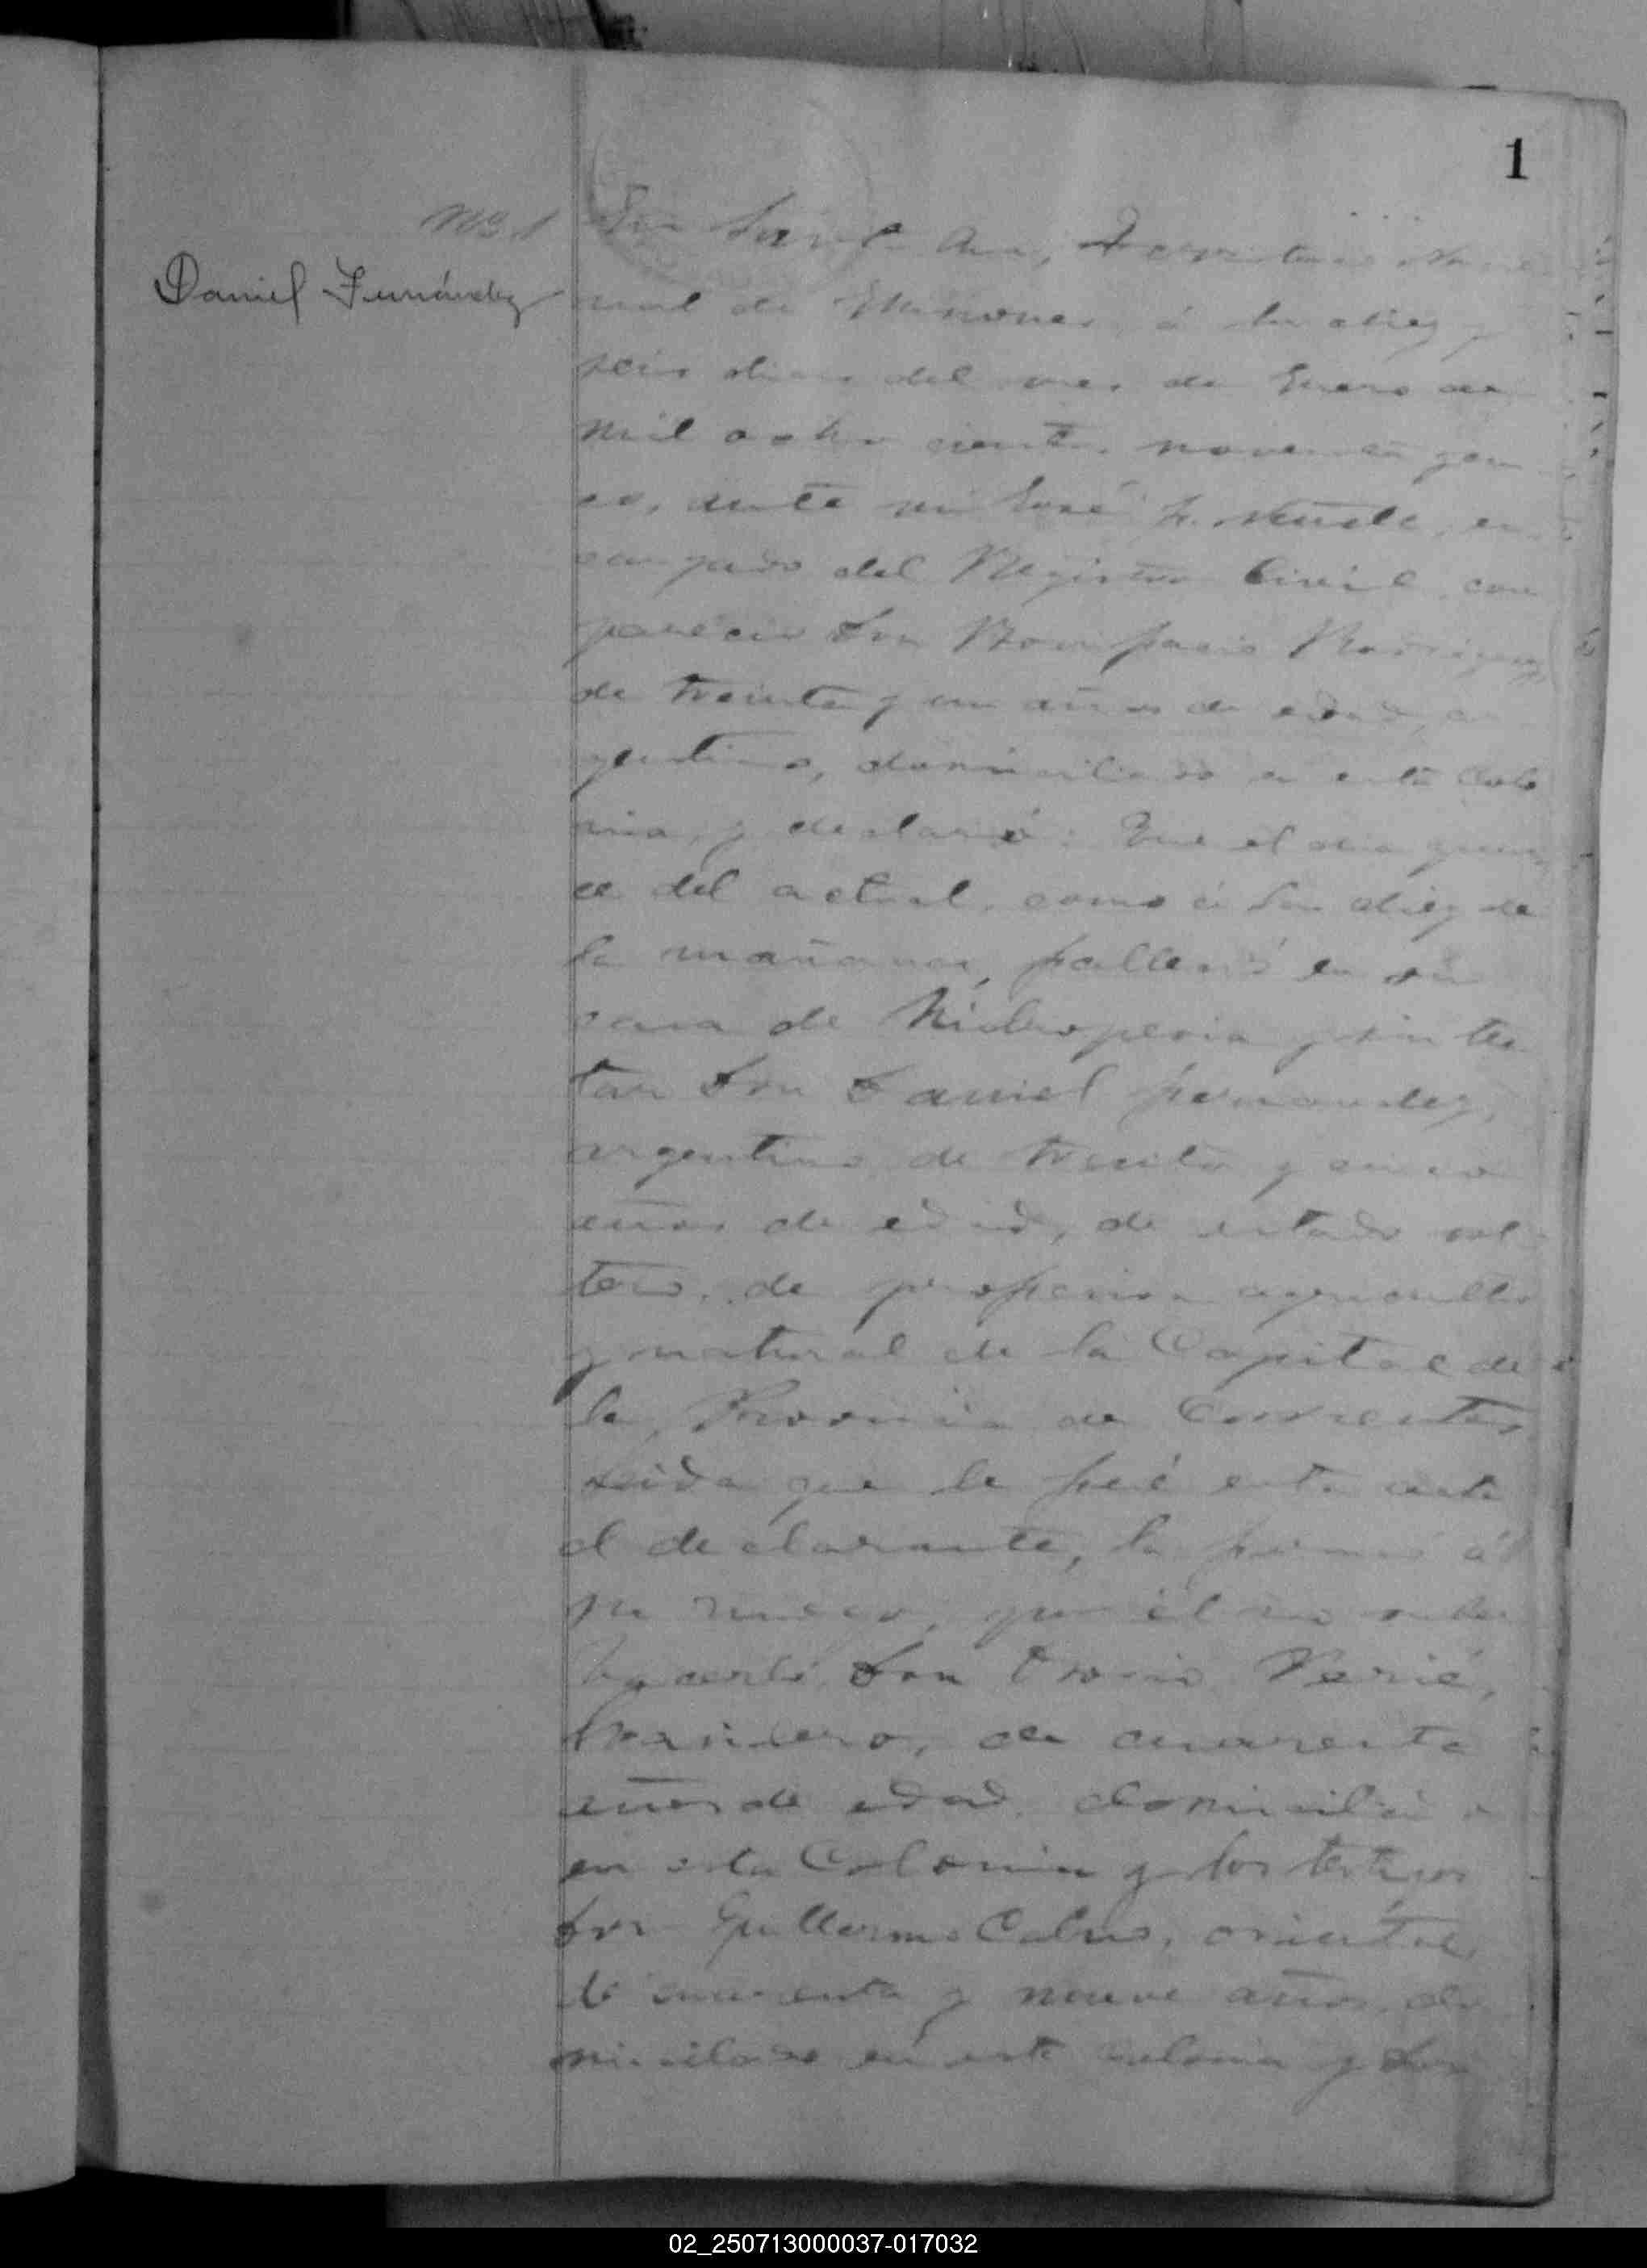 1
Nº 1
Daniel Fernández
En Santa Ana, Territorio Nacio
nal de Misiones, á los diez y
seis dias del mes de Enero de
mil ocho cientos noventa y cin
co, ante mi José F. en
cargado del Registro Civil, com
pareció Don Bonifacio Rodriguez,
de treinta y un años de edad, ar
gentino, domiciliado en esta Colo
nia, y declaró: Que el dia quin
ce del actual, como á las diez de
la mañana, falleció en su
casa de hidropesia y sin tes
tar Don Daniel Fernandez,
argentino de treinta y cinco
años de edad, de estado sol
tero, de profesion agricultor
y natural de la Capital de
la Provincia de Corrientes,
Leida que le fué esta acta
al declarante, la firmó á
su ruego, por él no saber
hacerlo, Don
de cuarenta
años de edad, domiciliado
en esta Colonia y los testigos
Don Guillermo oriental,
de cuarenta y nueve años, do
miciliado en esta colonia y Don
02_250713000037-017032